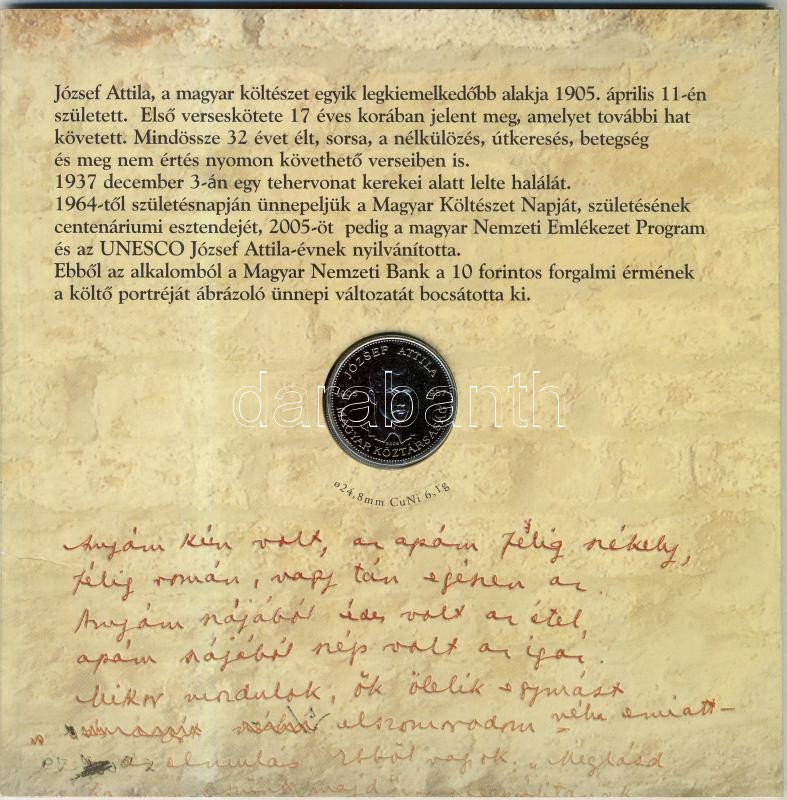 József Attila, a magyar költészet egyik legkiemelkedőbb alakja 1905. április 11-én
született. Első verseskötete 17 éves korában jelent meg, amelyet további hat
követett. Mindössze 32 évet élt, sorsa, a nélkülözés, útkeresés, betegség
és meg nem értés nyomon követhető verseiben is.
1937 december 3-án egy tehervonat kerekei alatt lelte halálát.
1964-től születésnapján ünnepeljük a Magyar Költészet Napját, születésének
centenáriumi esztendejét, 2005-öt pedig a magyar Nemzeti Emlékezet Program
és az UNESCO József Attila-évnek nyilvánította.
Ebből az alkalomból a Magyar Nemzeti Bank a 10 forintos forgalmi érmének
a költő portréját ábrázoló ünnepi változatát bocsátotta ki.
JÓZSEF ATTILA
darabanth
MAGYAR KÖZTÁRSASÁG
ø24,8mm CuNi 6,1g
Anyám kún volt, az apám félig székely,
félig román, vagy tán egészen az.
Anyám szájából édes volt az étel,
apám szájából szép volt az igaz.
Mikor mozdulok, ők ölelik egymást
elszomorodom néha emiatt –
ez az elmulás. Ebből vagyok. „Meglásd